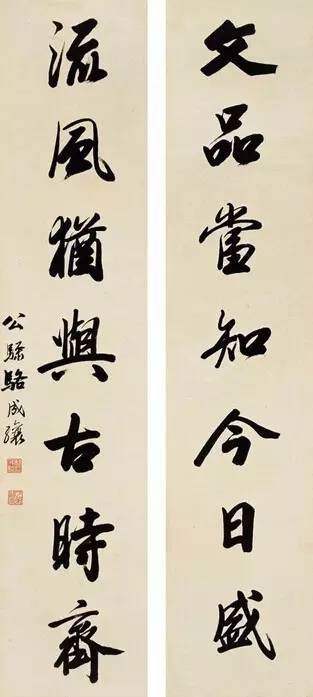 文品當知今日盛
流風猶與古時齋
公驌駱成驤